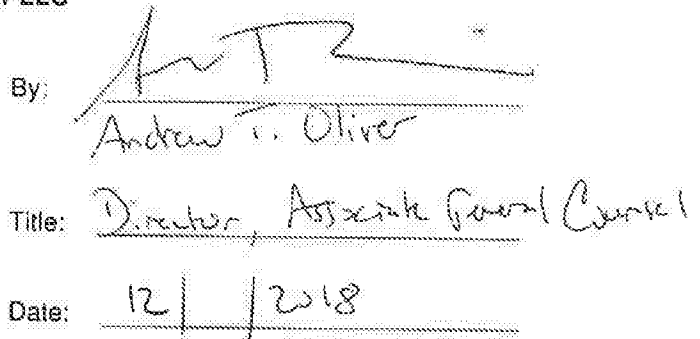 By:
Andrew T. Oliver
Title: Director, Associate General Counsel
Date: 12/ /2018